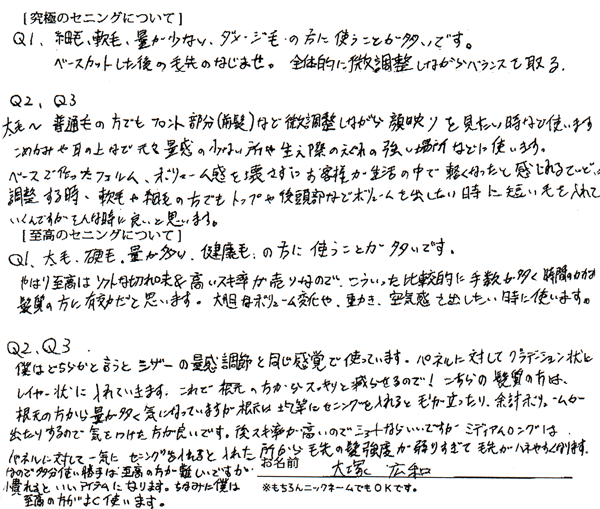 [究極のセニングについて]
Q1、細毛、軟毛、量が少ない、ダメージ毛の方に使うことが多いです。
ベースカットした後の毛先のなじませ。全体的に微調整しながらバランスを取る。
Q2、Q3
太毛〜普通毛の方でもフロント部分(前髪)など微調整しながら顔映りを見たい時など使います
こめかみや耳の上など元々量感の少ない所や生え際のえぐれの強い場所などに使います。
ベースで作ったフォルム、ボリューム感を壊さずにお客様が生活の中で軽くなったと感じれるていどの
調整する時、軟毛や細毛の方でもトップや後頭部などボリュームを出したい時に短い毛を入れて
いくんですがそんな時に良いと思います。
[至高のセニングについて]
Q1、太毛、硬毛、量が多い、健康毛、の方に使うことが多いです。
やはり至高はソフトな切れ味&高いスキ率が売りなので、こういった比較的に手数が多く時間のかかる
髪質の方に有効だと思います。大胆なボリューム変化や、動き、空気感を出したい時に使います。
Q2、Q3
僕はどちらかと言うとシザーの量感調節と同じ感覚で使っています。パネルに対してグラデーション状と
レイヤー状に入れていきます。これで根元の方からスッキリと減らせるので!こちらの髪質の方は、
根元の方から量が多く気になっていますが根元に均等にセニングを入れると毛が立ったり、余計ボリュームが
出たりするので気をつけた方が良いです。後スキ率が高いのでショートならいいですがミディアムロングは
パネルに対して一気にセニングを入れると入れた所から毛先の髪強度が弱りすぎて毛先がハネやすくなります。
なので多分使い勝手は至高の方が難しいですが
慣れるといいアイテムになります。ちなみに僕は
至高の方がよく使います。
お名前 大塚 広和
※もちろんニックネームでもOKです。